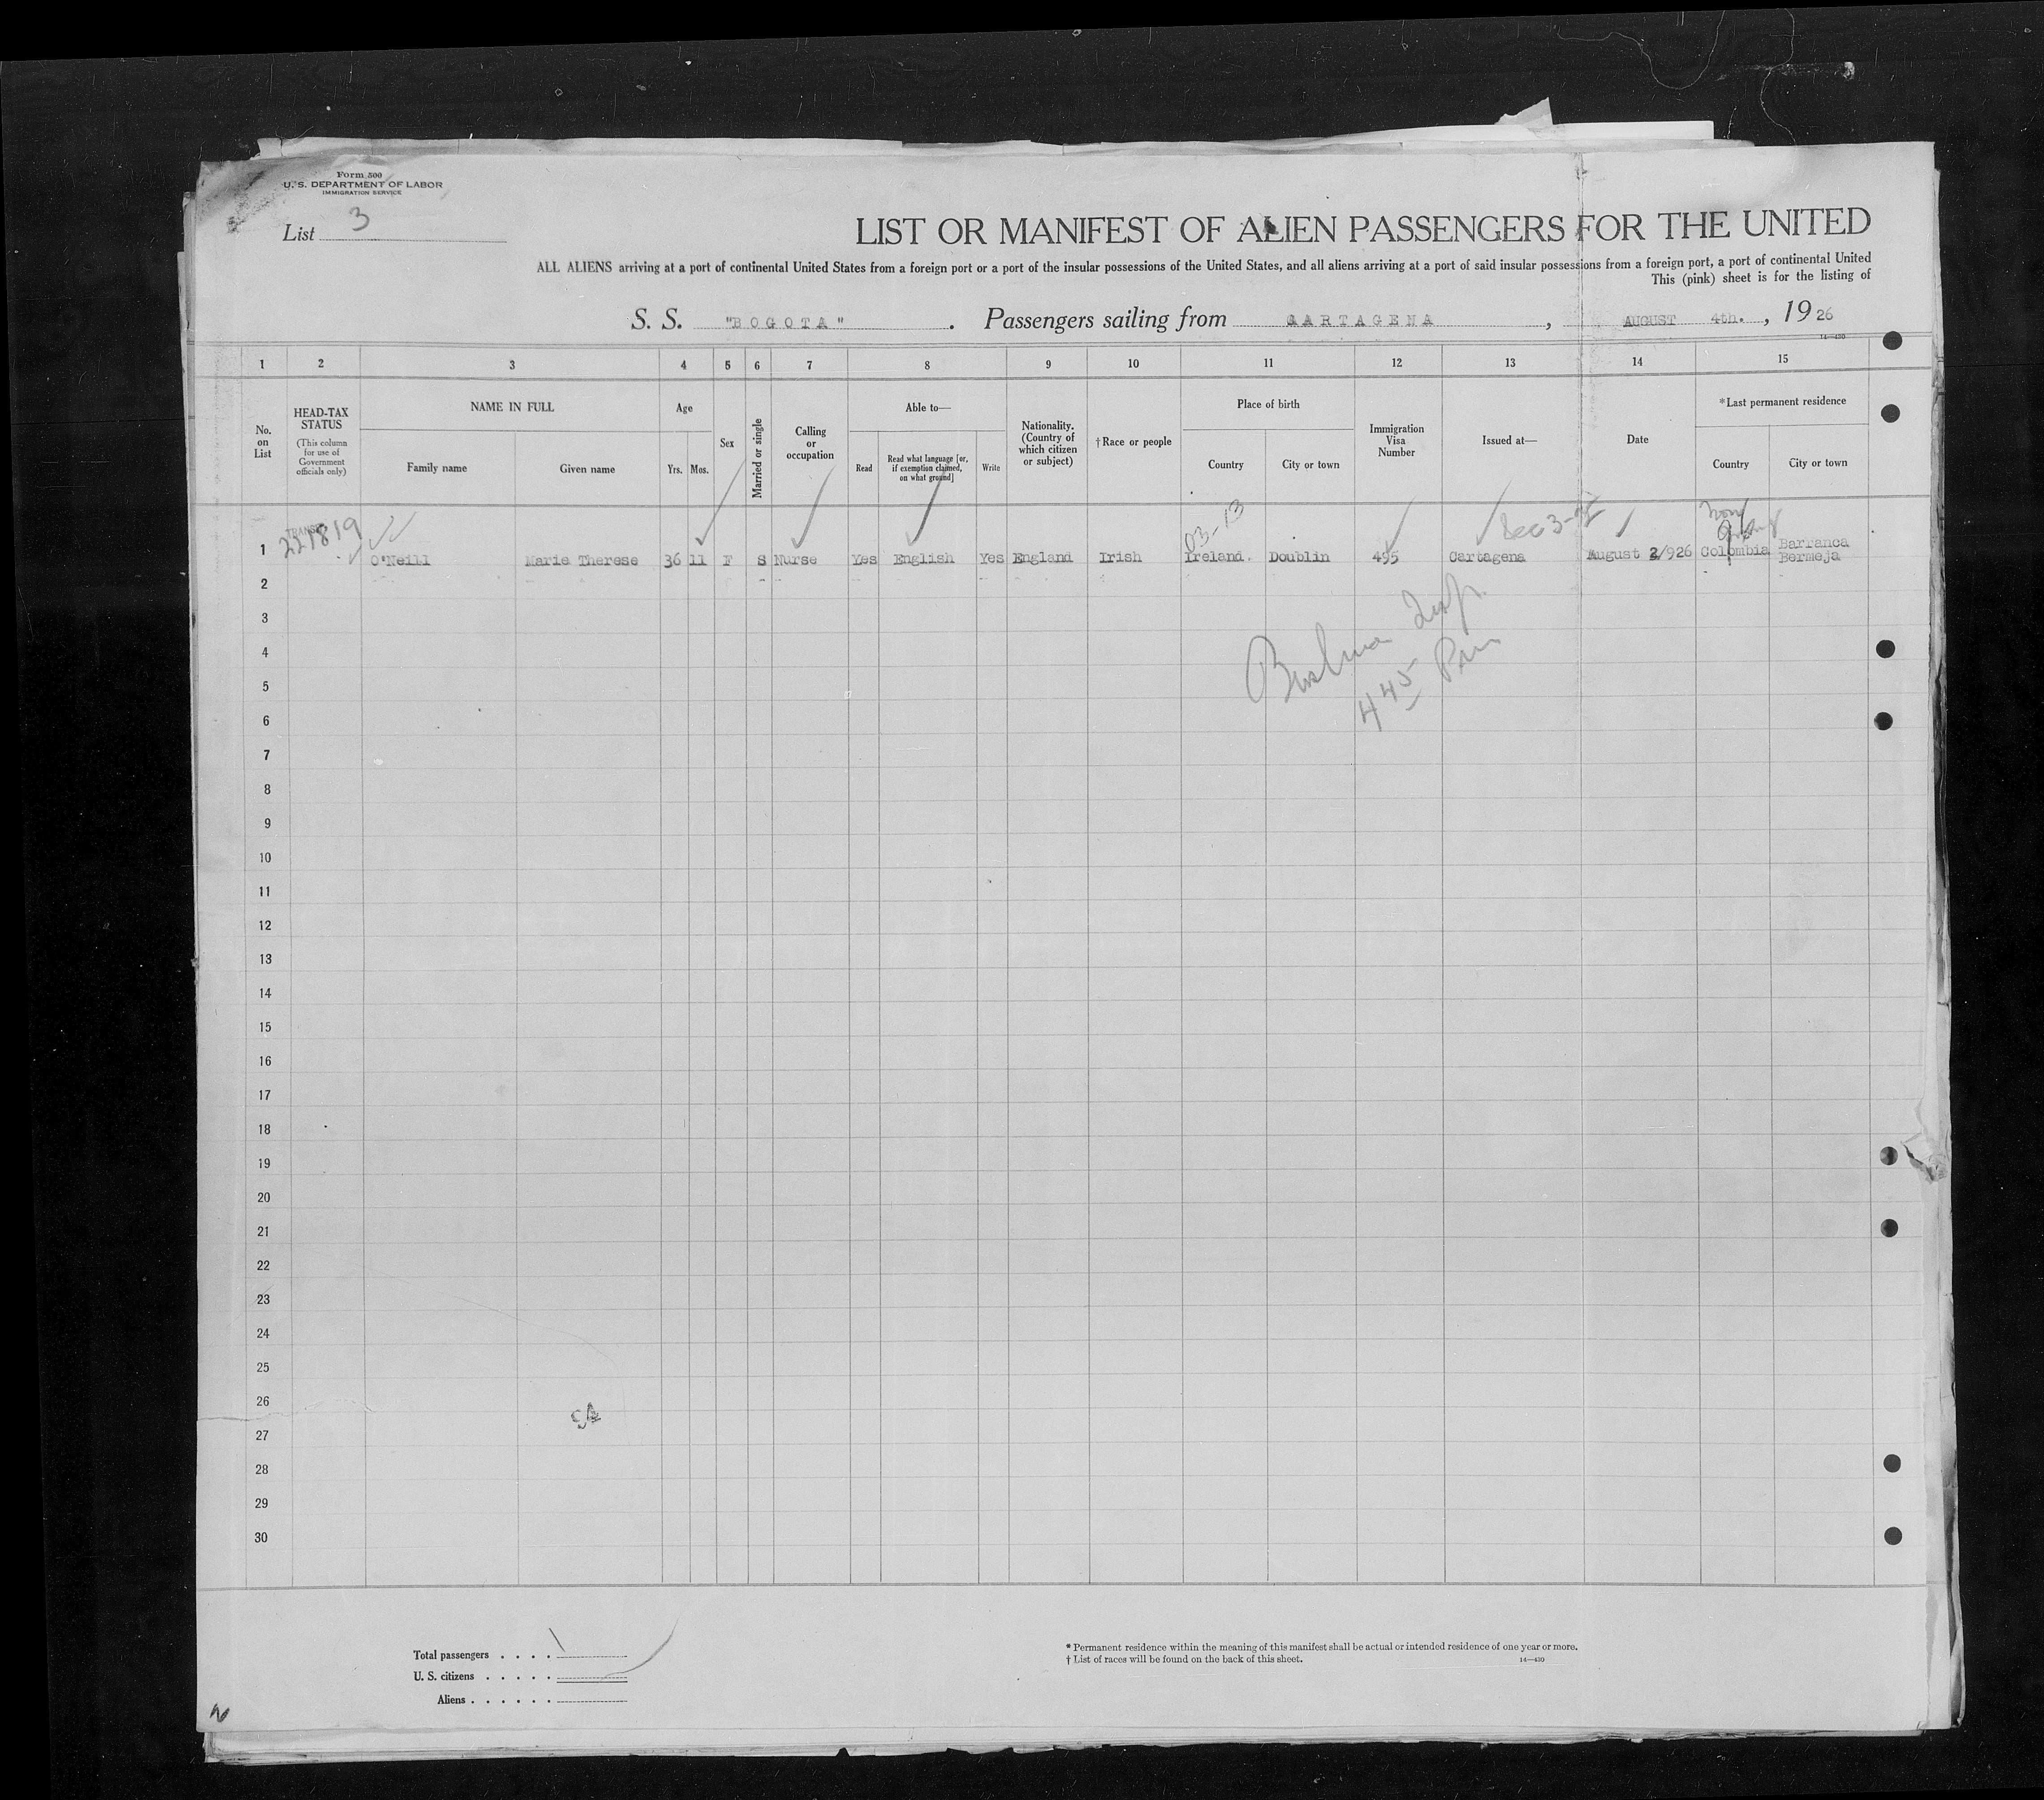 Form 500
U. S. DEPARTMENT OF LABOR
IMMIGRATION SERVICE
List 3
LIST OR MANIFEST OF ALIEN PASSENGERS FOR THE UNITED
ALL ALIENS arriving at a port of continental United States from a foreign port or a port of the insular possessions of the United States, and all aliens arriving at a port of said insular possessions from a foreign port, a port of continental United
This (pink) sheet is for the listing of
S. S. "BOGOTA". Passengers sailing from CARTAGENA, AUGUST 4th., 1926
14—430
1 2 3 4 5 6 7 8 9 10 11 12 13 14 15
No. on List
HEAD-TAX STATUS
(This column for use of Government officials only)
NAME IN FULL
Family name
Given name
Age
Yrs. Mos.
Sex
Married or single
Calling or occupation
Able to—
Read
Read what language [or, if exemption claimed, on what ground]
Write
Nationality. (Country of which citizen or subject)
† Race or people
Place of birth
Country
City or town
Immigration Visa Number
Issued at—
Date
*Last permanent residence
Country
City or town
TRANSIT
221819
03-13
Sec 3-
Non
1 O'Neill Marie Therese 36 11 F S Nurse Yes English Yes England Irish Ireland. Doublin 495 Cartagena August 2/926 Colombia Barranca Bermeja
2
3
4
445 Pm
5
6
7
8
9
10
11
12
13
14
15
16
17
18
19
20
21
22
23
24
25
26
27
28
29
30
Total passengers . . . . 1
U. S. citizens . . . . .
Aliens . . . . . .
* Permanent residence within the meaning of this manifest shall be actual or intended residence of one year or more.
† List of races will be found on the back of this sheet.
14—430